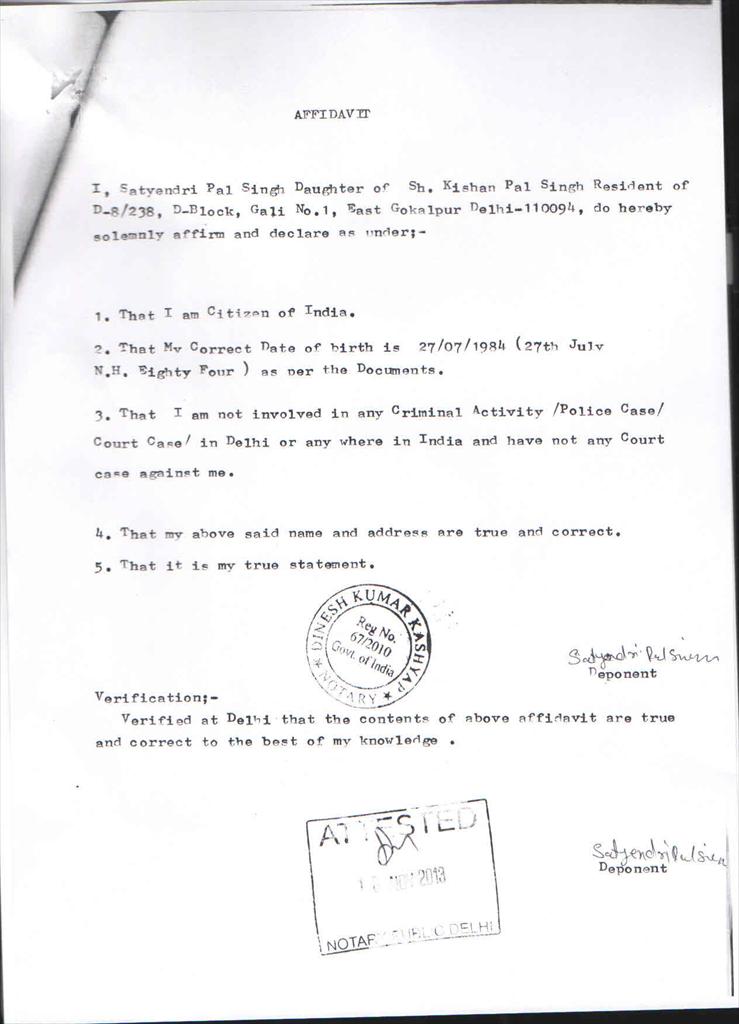 AFFIDAVIT
I, Satyendri Pal Singh Daughter of Sh. Kishan Pal Singh Resident of
D-8/238, D-Block, Gali No.1, East Gokalpur Delhi-110094, do hereby
solemnly affirm and declare as under;-
1. That I am Citizen of India.
2. That My Correct Date of birth is 27/07/1984 (27th July
N.H. Eighty Four ) as per the Documents.
3. That I am not involved in any Criminal Activity /Police Case/
Court Case/ in Delhi or any where in India and have not any Court
case against me.
4. That my above said name and address are true and correct.
5. That it is my true statement.
DINESH KUMAR KASHYAP
Reg No.
67/2010
Govt. of India
NOTARY
Satyendri Pal
Deponent
Verification;-
Verified at Delhi that the contents of above affidavit are true
and correct to the best of my knowledge .
ATTESTED
NOV 2013
NOTARY PUBLIC DELHI
Satyendri Pal
Deponent